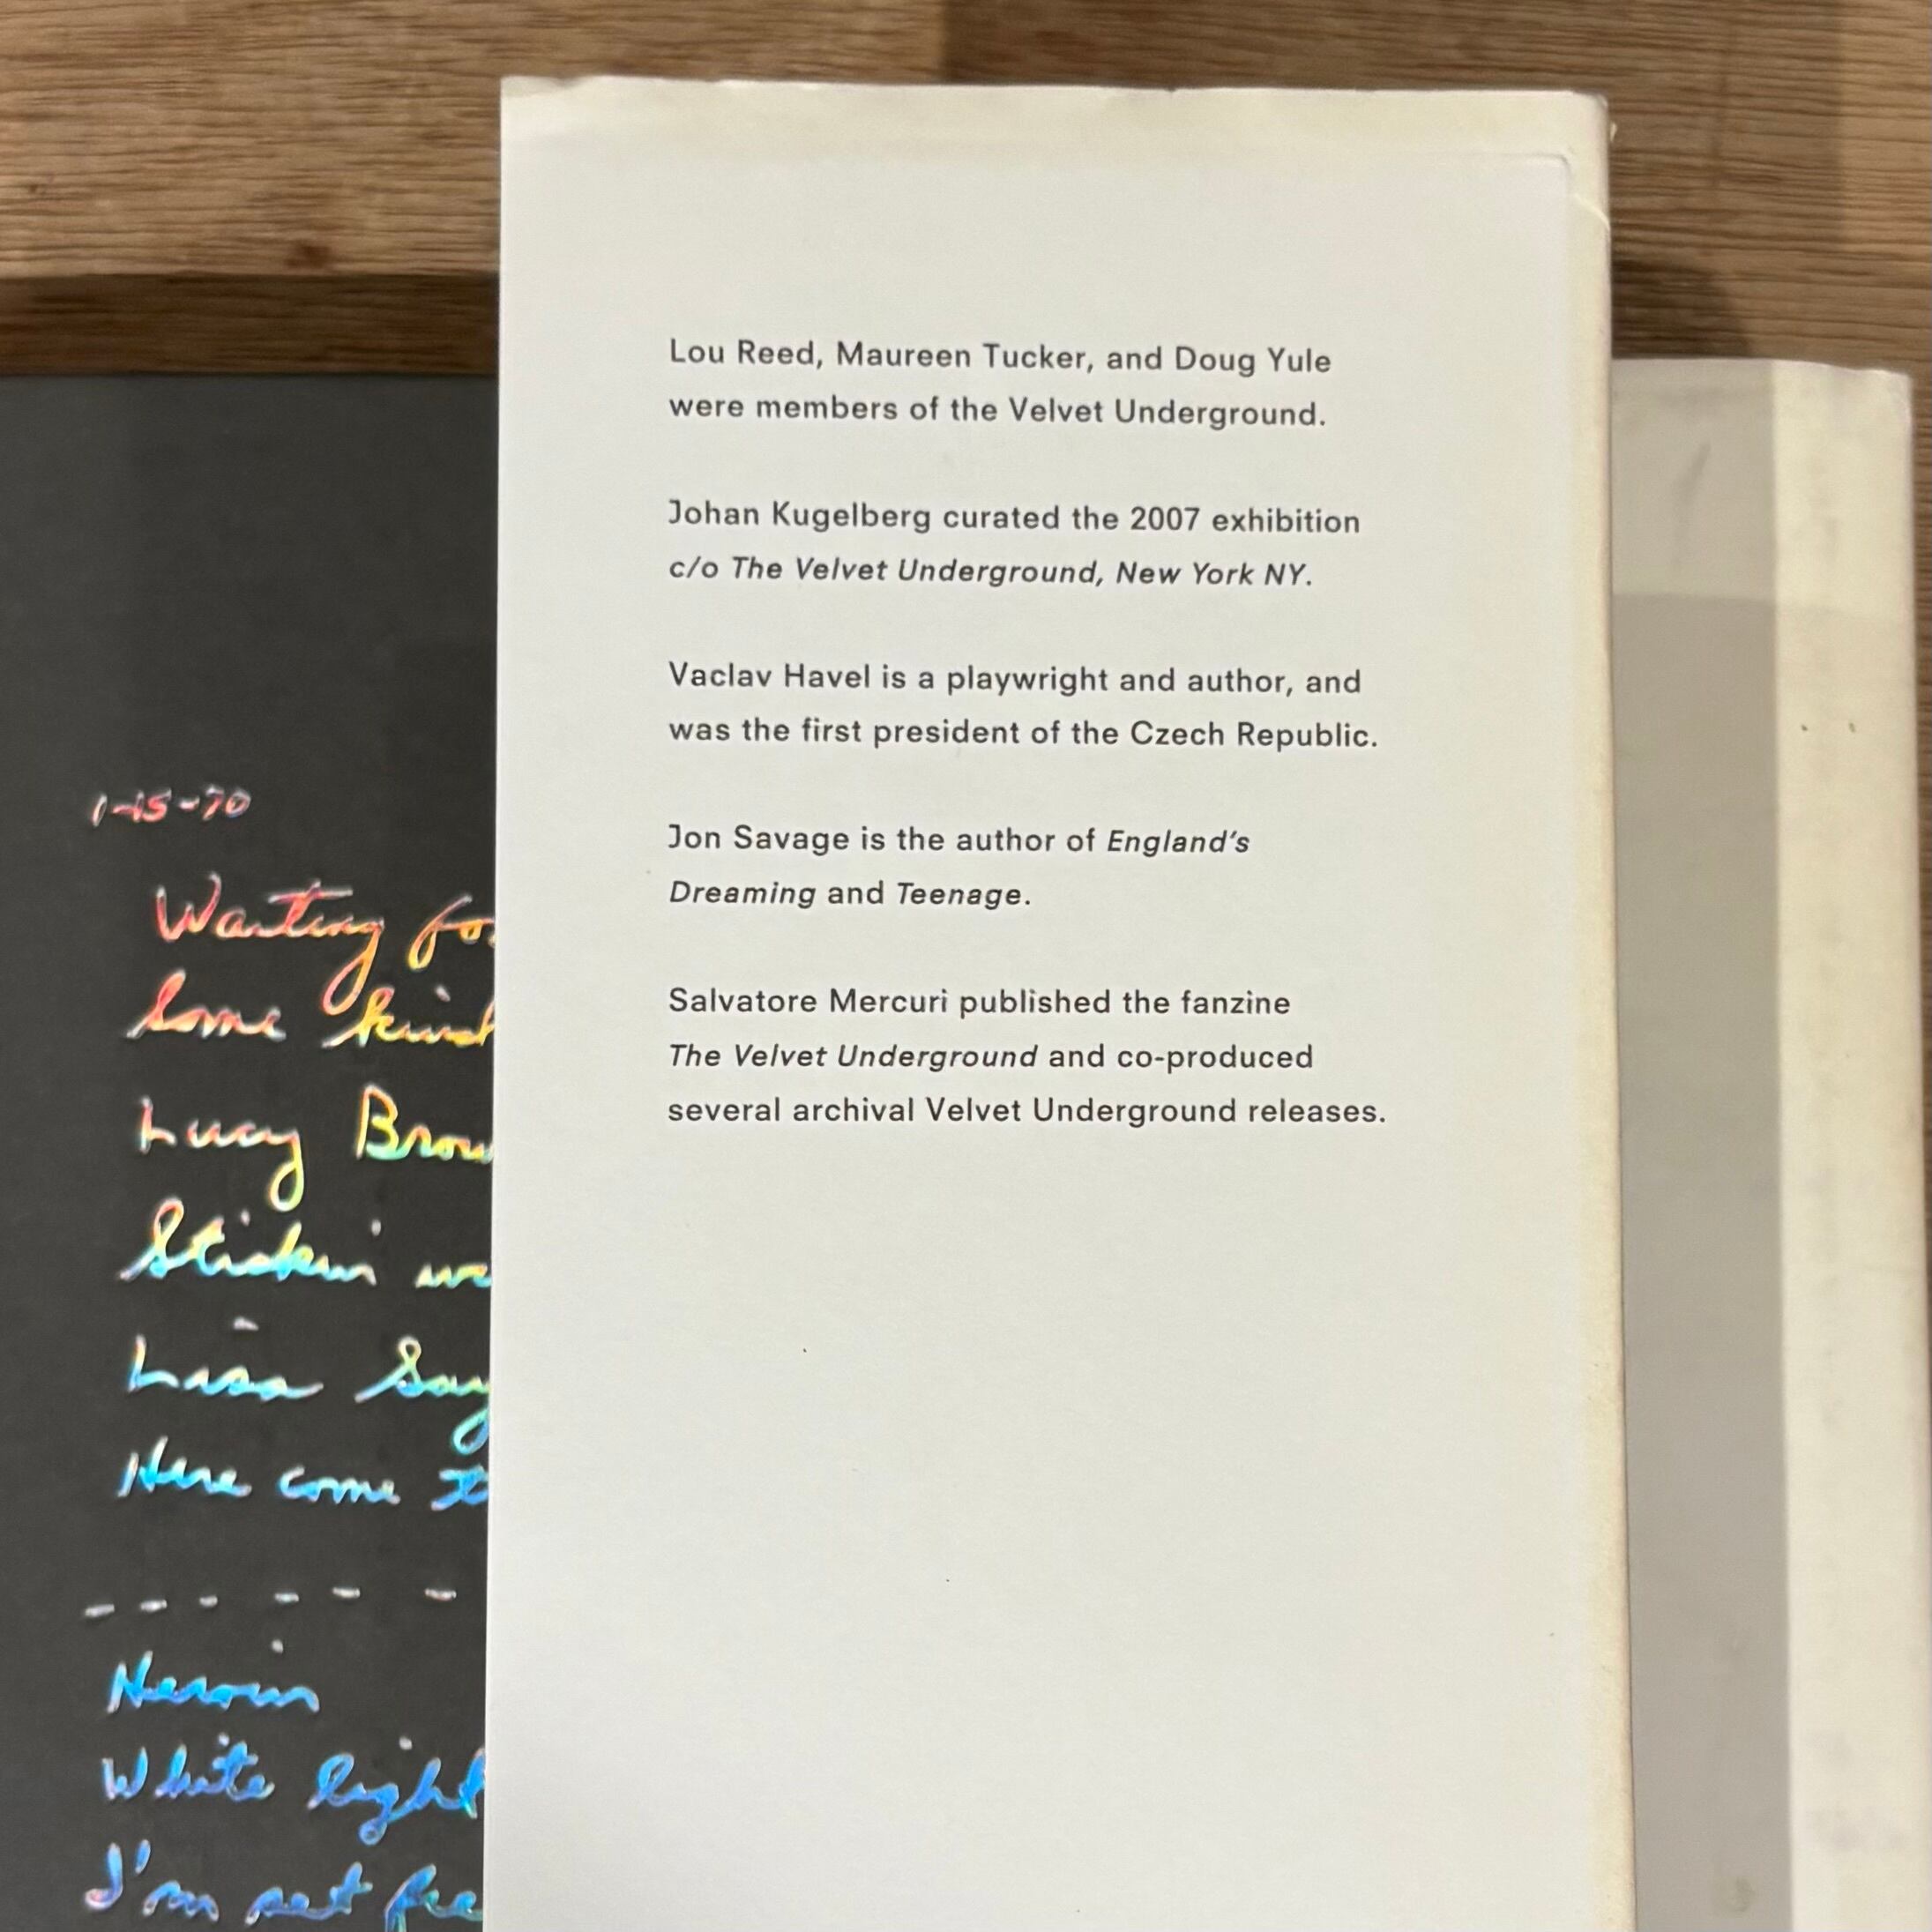 Lou Reed, Maureen Tucker, and Doug Yule
were members of the Velvet Underground.
Johan Kugelberg curated the 2007 exhibition
c/o The Velvet Underground, New York NY.
Vaclav Havel is a playwright and author, and
was the first president of the Czech Republic.
Jon Savage is the author of England's
Dreaming and Teenage.
Salvatore Mercuri published the fanzine
The Velvet Underground and co-produced
several archival Velvet Underground releases.
1-15-70
Waiting fo
Some kind
Lucy Brow
Stickin' w
Lisa Say
Here come
- - - - - -
Heroin
White light
I'm set fre